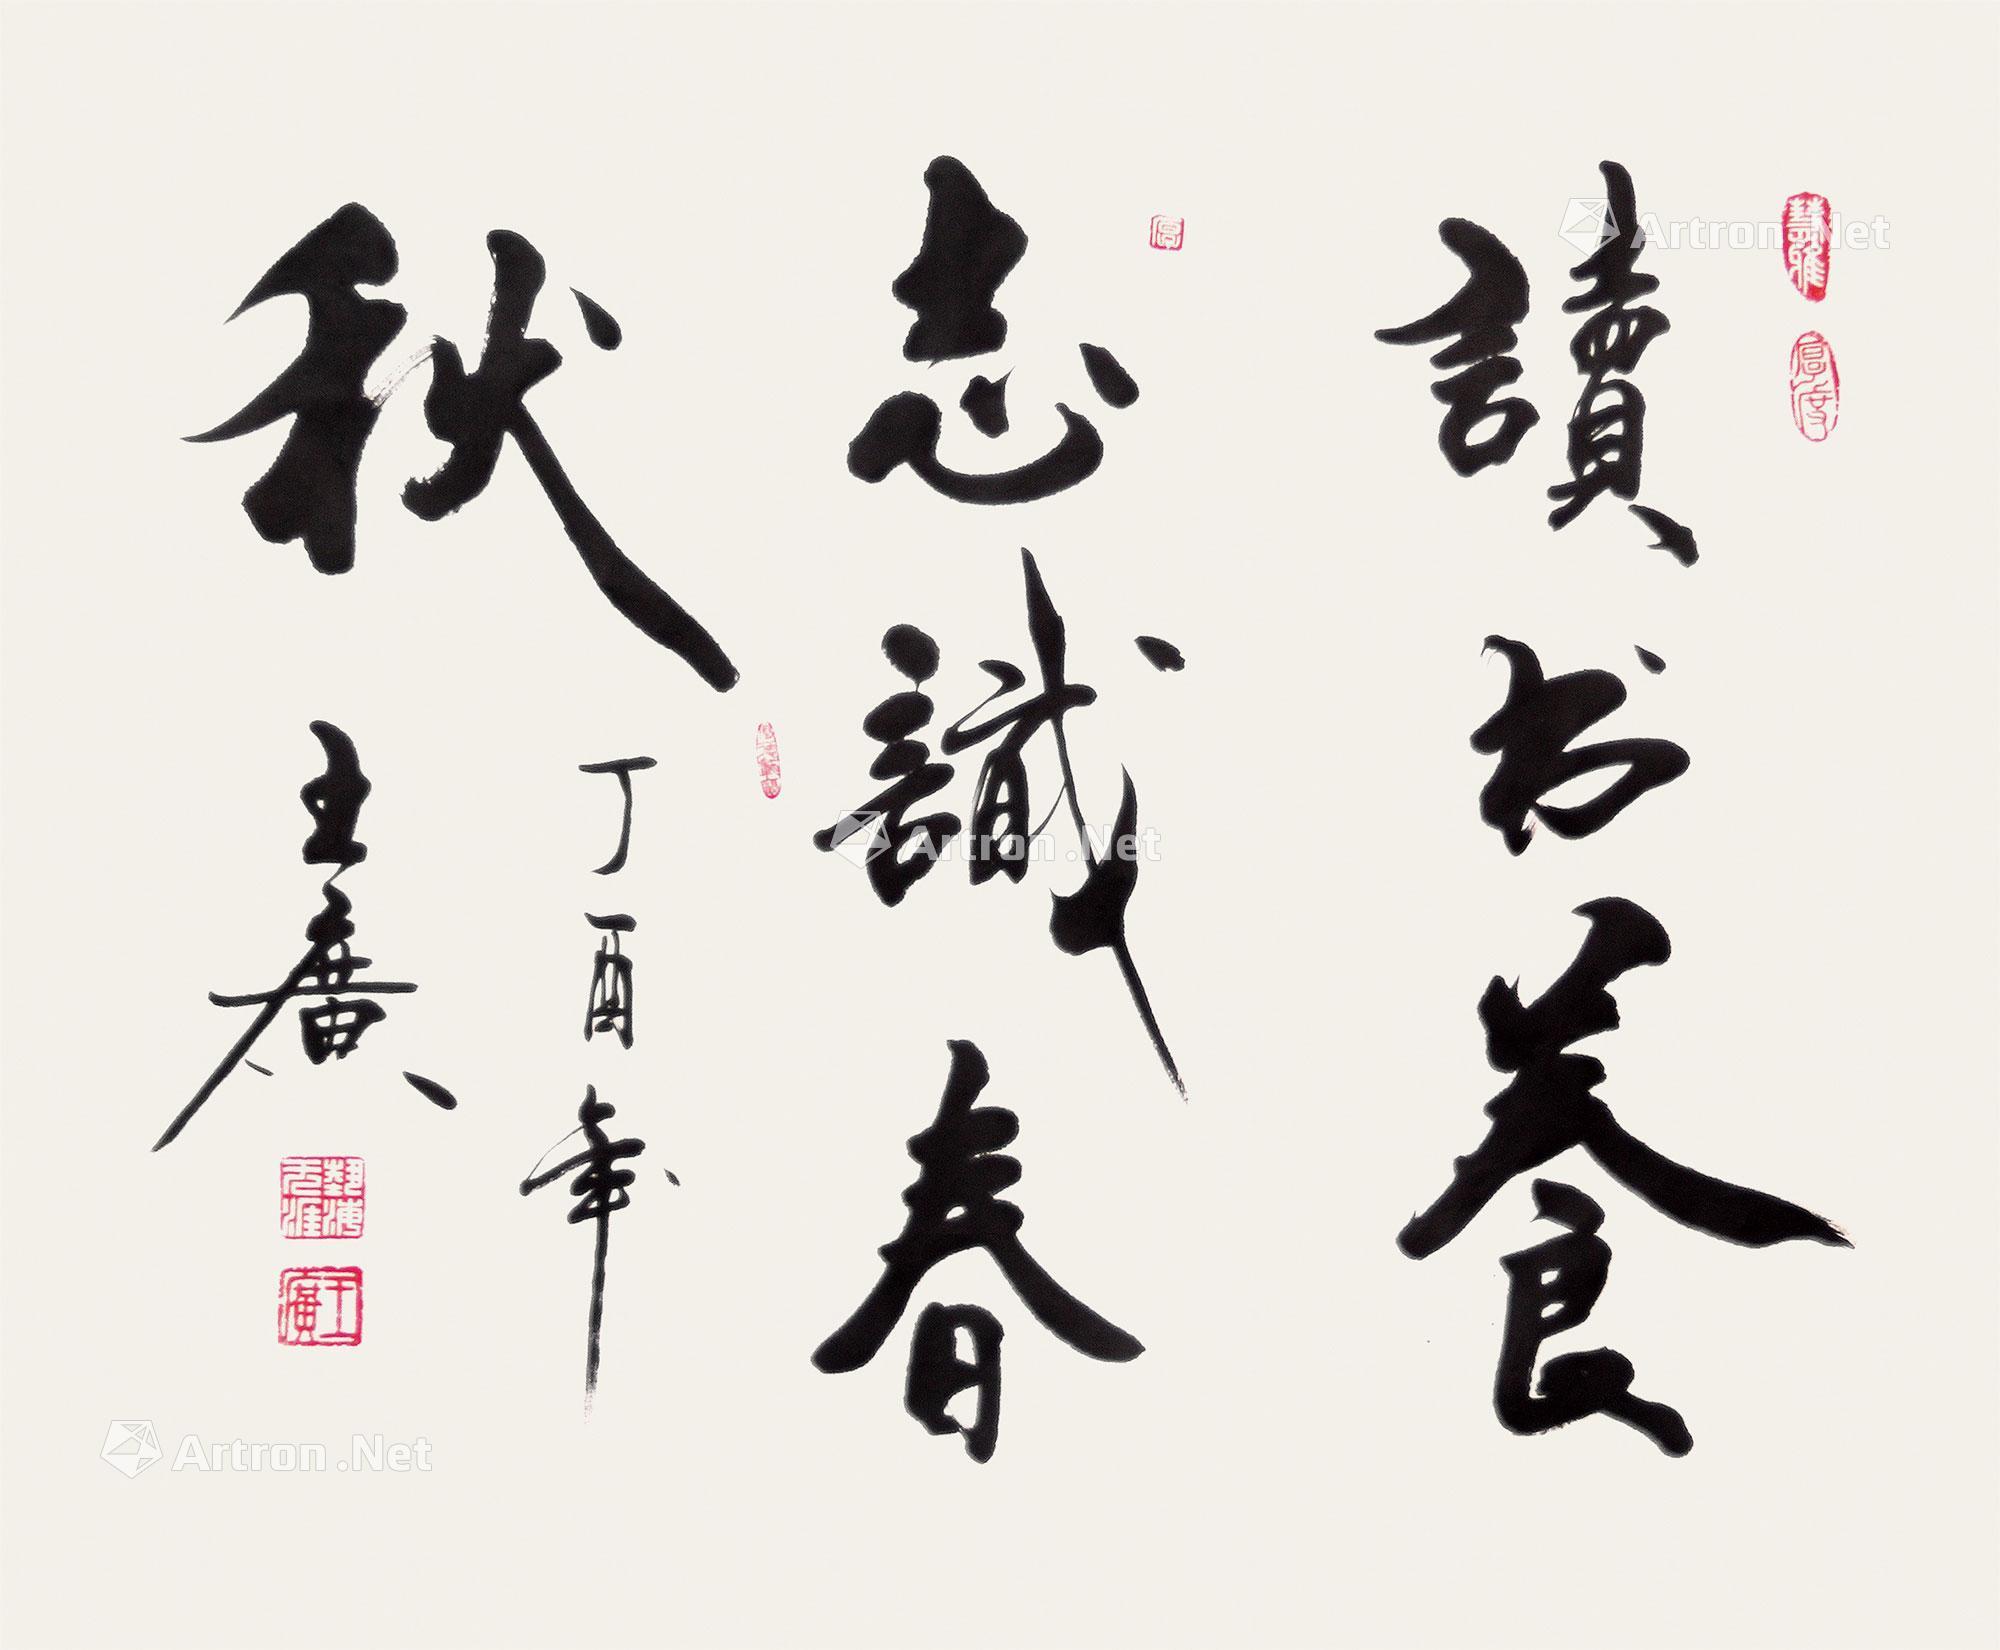 讀书养
志識春
秋
丁酉年
王廣
王廣
Artron.Net
Artron.Net
Artron.Net